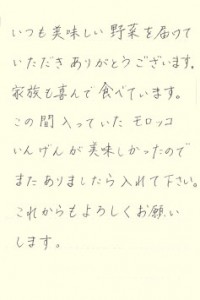 いつも美味しい野菜を届けて
いただきありがとうございます。
家族も喜んで食べています。
この間入っていたモロッコ
いんげんが美味しかったので
またありましたら入れて下さい。
これからもよろしくお願い
します。